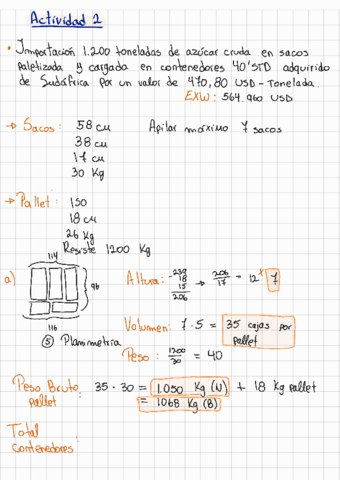 Actividad 1
• Importación 1.200 toneladas de azúcar cruda en sacos
paletizada y cargada en contenedores 40'STD adquirido
de Sudáfrica por un valor de 470,80 USD - Tonelada.
EXW: 564.960 USD
→ Sacos: 58 cm Apilar máximo 7 sacos
38 cm
17 cm
30 Kg
→ Pallet: 150
18 cm
26 Kg
Resiste 1200 Kg
114
a) 96
116
⑤ Planimetria
Altura: -239
18
15
206
→ 206/17 = 12 * 7
Volumen: 7 · 5 = 35 cajas por
pallet
Peso: 1200/30 = 40
Peso Bruto pallet: 35 · 30 = 1.050 Kg (N) + 18 Kg pallet
= 1068 Kg (B)
Total
contenedores: